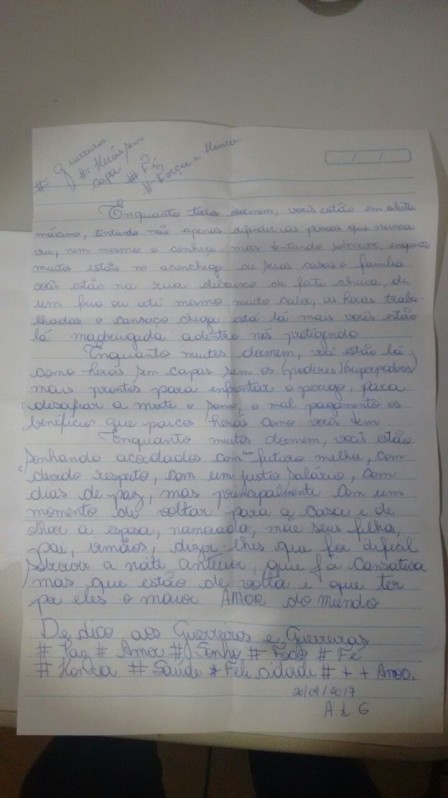 # guerreiros
# Heróis sem
capa # Fé
# Força # Honra
/ /
Enquanto todos dormem, vocês estão em alerta
máximo, tentando não apenas pessoas que nunca
viu, nem mesmo o conhece, mas tentando sobreviver, enquanto
muitos estão no aconchego de suas casas e família
vocês estão na rua debaixo de forte chuva, de
um frio ou até mesmo muito calor, as horas traba-
lhadas o cansaço chega está lá mais vocês estão
lá madrugada adentro nos protegendo.
Enquanto muitos dormem, você estão lá
como heróis sem capas sem os (poderes) superpoderes
mais prontos para enfrentar o perigo, para
desafiar a morte o sono, o mal pagamento os
benefícios que poucos heróis como vocês tem
Enquanto muitos dormem, vocês estão
sonhando acordados com um futuro melho, com
devido respeito, com um justo salário, com
dias de paz, mas principalmente com um
momento de voltar para a casa e de
olhar a esposa, namorada, mãe seus filhos,
pai, irmãos, dizer-lhes que foi dificil
sobreviver a noite anterior, que foi cansativa
mas que estão de volta e que ter
por eles o maior AMOR do mundo
Dedico aos Guerreiros e Guerreiras
# Paz # Amor # Sonho # Foco # Fé
# Honra # Saúde # Felicidade # + + Amor.
20/01/2017
A L G